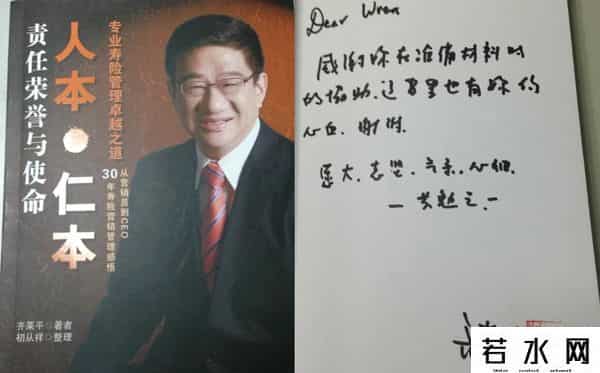 人本·仁本
责任荣誉与使命
专业寿险管理卓越之道
从营销员到CEO
30年寿险营销管理感悟
齐莱平◎著者
初从祥◎整理
Dear Wren
感谢你在准备材料时
的协助.这里也有你的
心血.谢谢.
志坚
心细.
共勉之.
若水网